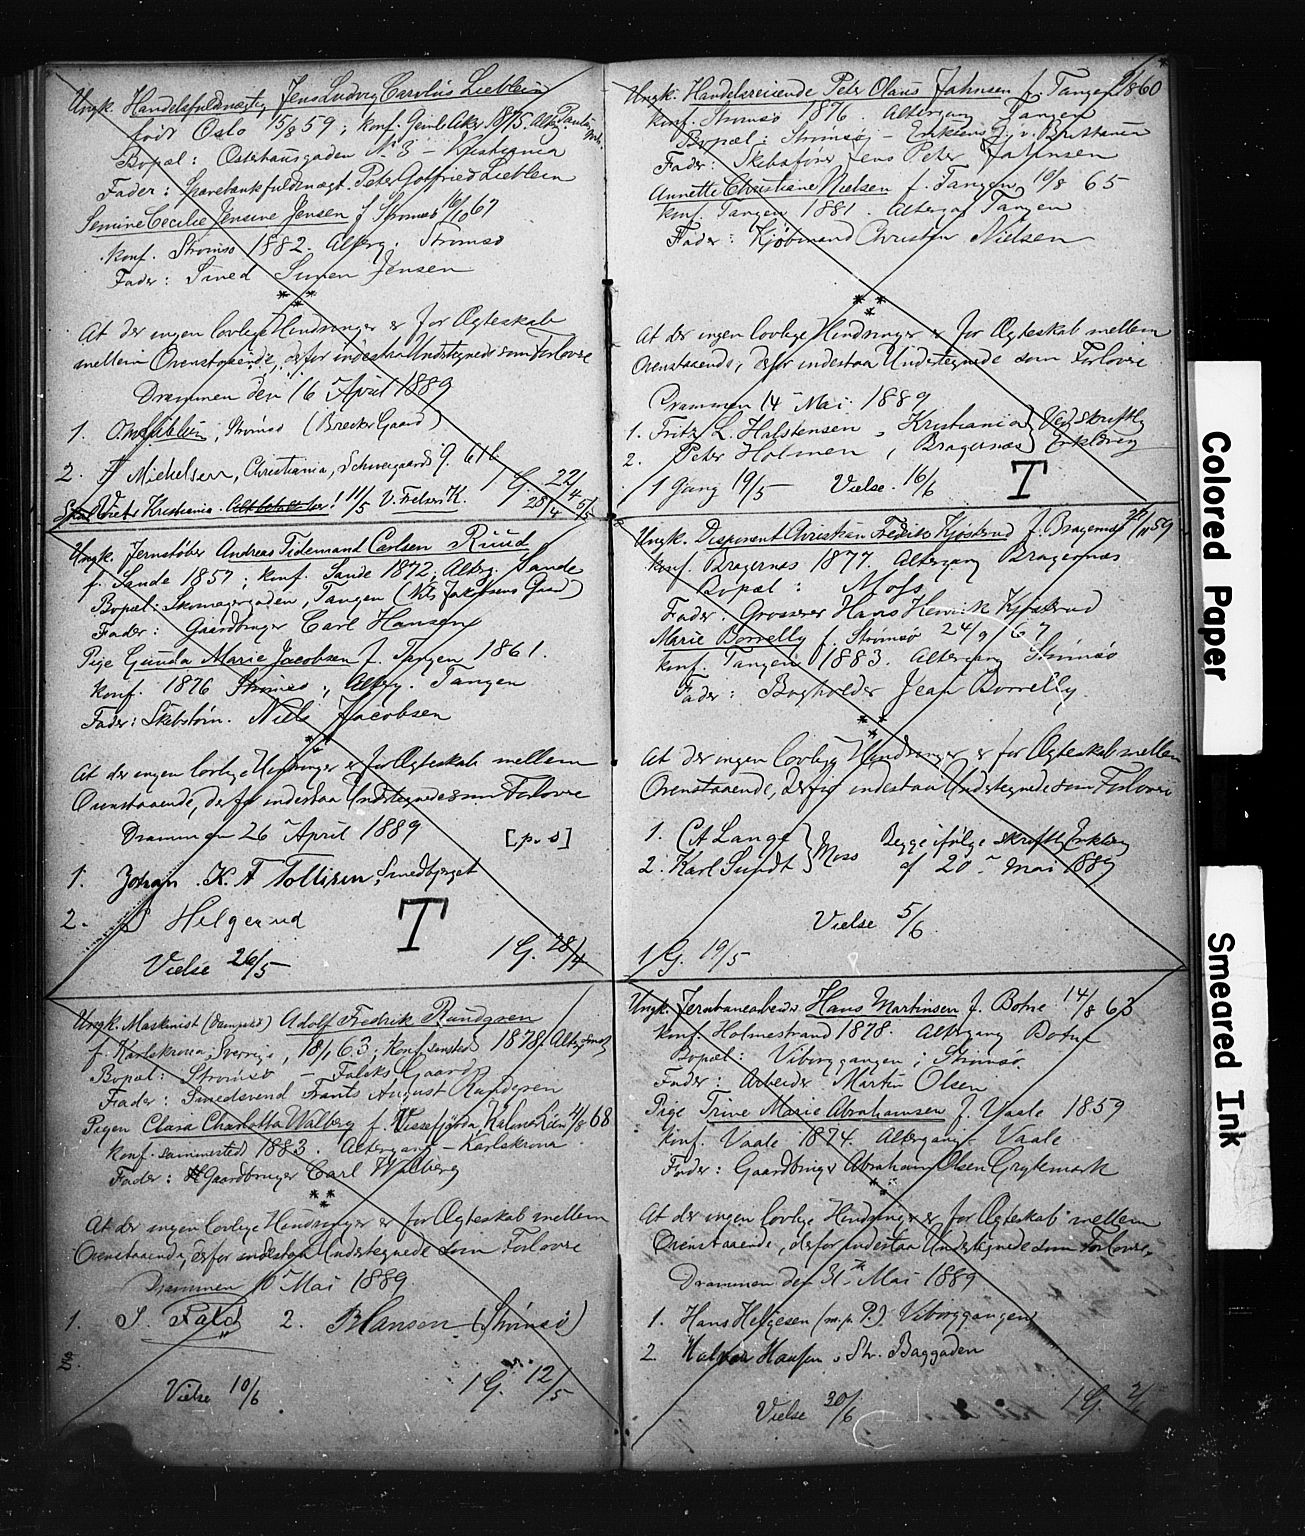 Ungk. Handelsfuldmægtig Jens Ludvig Carolus Lieblein
født Oslo 15/8 59; konf. Gamle Aker 1875. Altg. Paulus
Bopæl: Osterhausgaden No 3 – Kristiania
Fader: Sparebankfuldmægt. Peter Gotfried Lieblein
Semine Cecilie Jensine Jensen f. Strømsø 16/10 67
konf. Strømsø 1882. Alterg: Strømsø
Fader: Smed Simen Jensen
At der ingen lovlige Hindringer er for Ægteskab
mellem Ovenstaaende, derfor indestaa Undertegnede som Forlovere
Drammen den 16 April 1889
1. Lieblein, Strømsø (Brecke Gaard)
2. F Michelsen, Christiania, Schweigaards g. 61b
1 G. 22/4 28/4 5/5
Kristiania. 11/5 V. Frelsers K.
Ungk. Jernstøber Andreas Tidemand Carlsen Ruud
f. Sande 1857; konf. Sande 1872; Alterg. Sande
Bopæl: Skomagergaden, Tangen (Nils Jakobsens Gaard)
Fader: Gaardbruger Carl Hansen
Pige Gunda Marie Jacobsen f. Tangen 1861.
konf. 1876 Strømsø; Alterg. Tangen
Fader: Skibstøm. Niels Jacobsen
At der ingen lovlige Hindringer er for Ægteskab mellem
Ovenstaaende, derfor indestaa Undertegnede som Forlovere
Drammen 26 April 1889 [p. s]
1. Johan K. F Tollisen, Smedbjerget
2. S Helgerud
T
Vielse 26/5 1 G. 28/4
Ungk. Maskinist (Dampskib) Adolf Fredrik Rundgren
f. Karlskrona, Sverrig, 18/1 63; konf. sammested 1878, Alterg. Smst
Bopæl: Strømsø – Falcks Gaard
Fader: Smedsvend Frants August Rundgren
Pigen Clara Charlotta Walberg f. Vissefjärda, Kalmar Län 4/8 68
konf. sammested 1883. Altergang – Karlskrona
Fader: Gaardbruger Carl Walberg
At der ingen lovlige Hindringer er for Ægteskab mellem
Ovenstaaende, derfor indestaa Undertegnede som Forlovere
Drammen 10 Mai 1889.
1. S. Falck 2. B Hansen (Strømsø)
2.
Vielse 10/6 1 G. 12/5
Ungk: Handelsreisende Peter Olaus Jahnsen f. Tangen 1860
konf. Strømsø 1876. Altergang Tangen
Bopæl: Strømsø – Enkens
Fader: Skibsfører Jens Peter Jahnsen
Annette Christiane Nielsen f. Tangen 10/8 65
konf. Tangen 1881. Altergang Tangen
Fader: Kjøbmand Christen Nielsen
At der ingen lovlige Hindringer er for Ægteskab mellem
Ovenstaaende, derfor indestaa Undertegnede som Forlovere
Drammen 14 Mai 1889
1. Fritz L. Halstensen, Kristiania } Ved skriftlig
2. Peter Holmen, Bragernæs } Erklæring
1 Gang 19/5 – Vielse. 16/6 T
Ungk. Disponent Christian Fredrik Kjøstrud f. Bragernæs 28/11 59
konf. Bragernæs 1877. Altergang Bragernæs
Bopæl: Moss
Fader. Grosserer Hans Henrik Kjøstrud
Marie Borrelly f. Strømsø 24/9 67
konf. Tangen 1883. Altergang Strømsø
Fader: Bogholder Jean Borrelly.
At der ingen lovlige Hindringer er for Ægteskab mellem
Ovenstaaende, derfor indestaa Undertegnede som Forlovere
1. C A Lange } Moss Begge ifølge skriftlig Erklæring
2. Karl Sundt } af 20 Mai 1889
Vielse 5/6.
1 G. 19/5
Ungk. Jernbanearbeider Hans Martinsen f. Botne 14/8 63
konf. Holmestrand 1878 Altergang Botne
Bopæl: Viborggangen; Strømsø.
Fader: Arbeider Martin Olsen
Pige Trine Marie Abrahamsen f. Vaale 1859
konf. Vaale 1874. Altergang Vaale
Fader: Gaardbruger Abraham Olsen Grytemark
At der ingen lovlige Hindringer er for Ægteskab mellem
Ovenstaaende, derfor indestaa Undertegnede som Forlovere.
Drammen den 31 Mai 1889
1. Hans Helgesen (m. p. P.) Viborggangen
2. Halvor Hansen, Str. Baggaden
Vielse 30/6 1 G. 2/6
Colored Paper
Smeared Ink